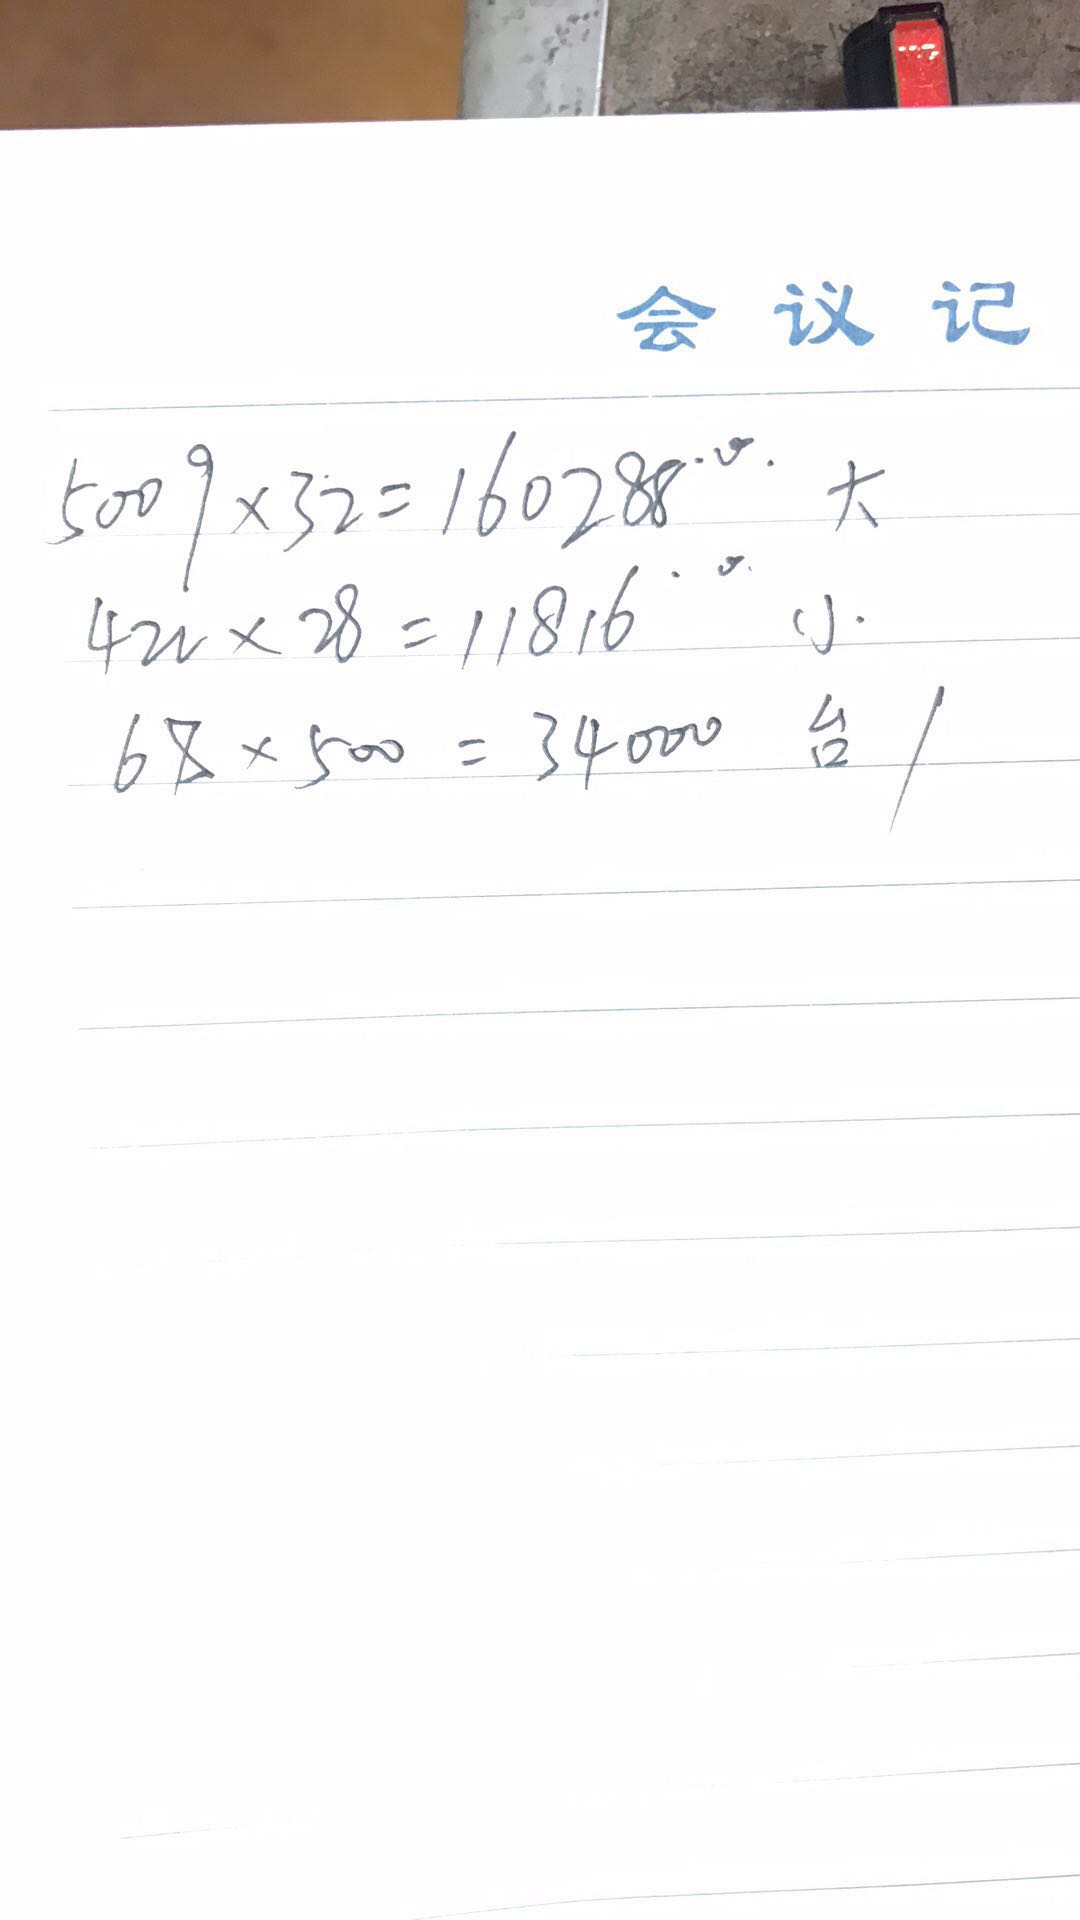 会议记
5009×32=160288.00 大
422×28=11816.00 小.
68×500=34000 台/